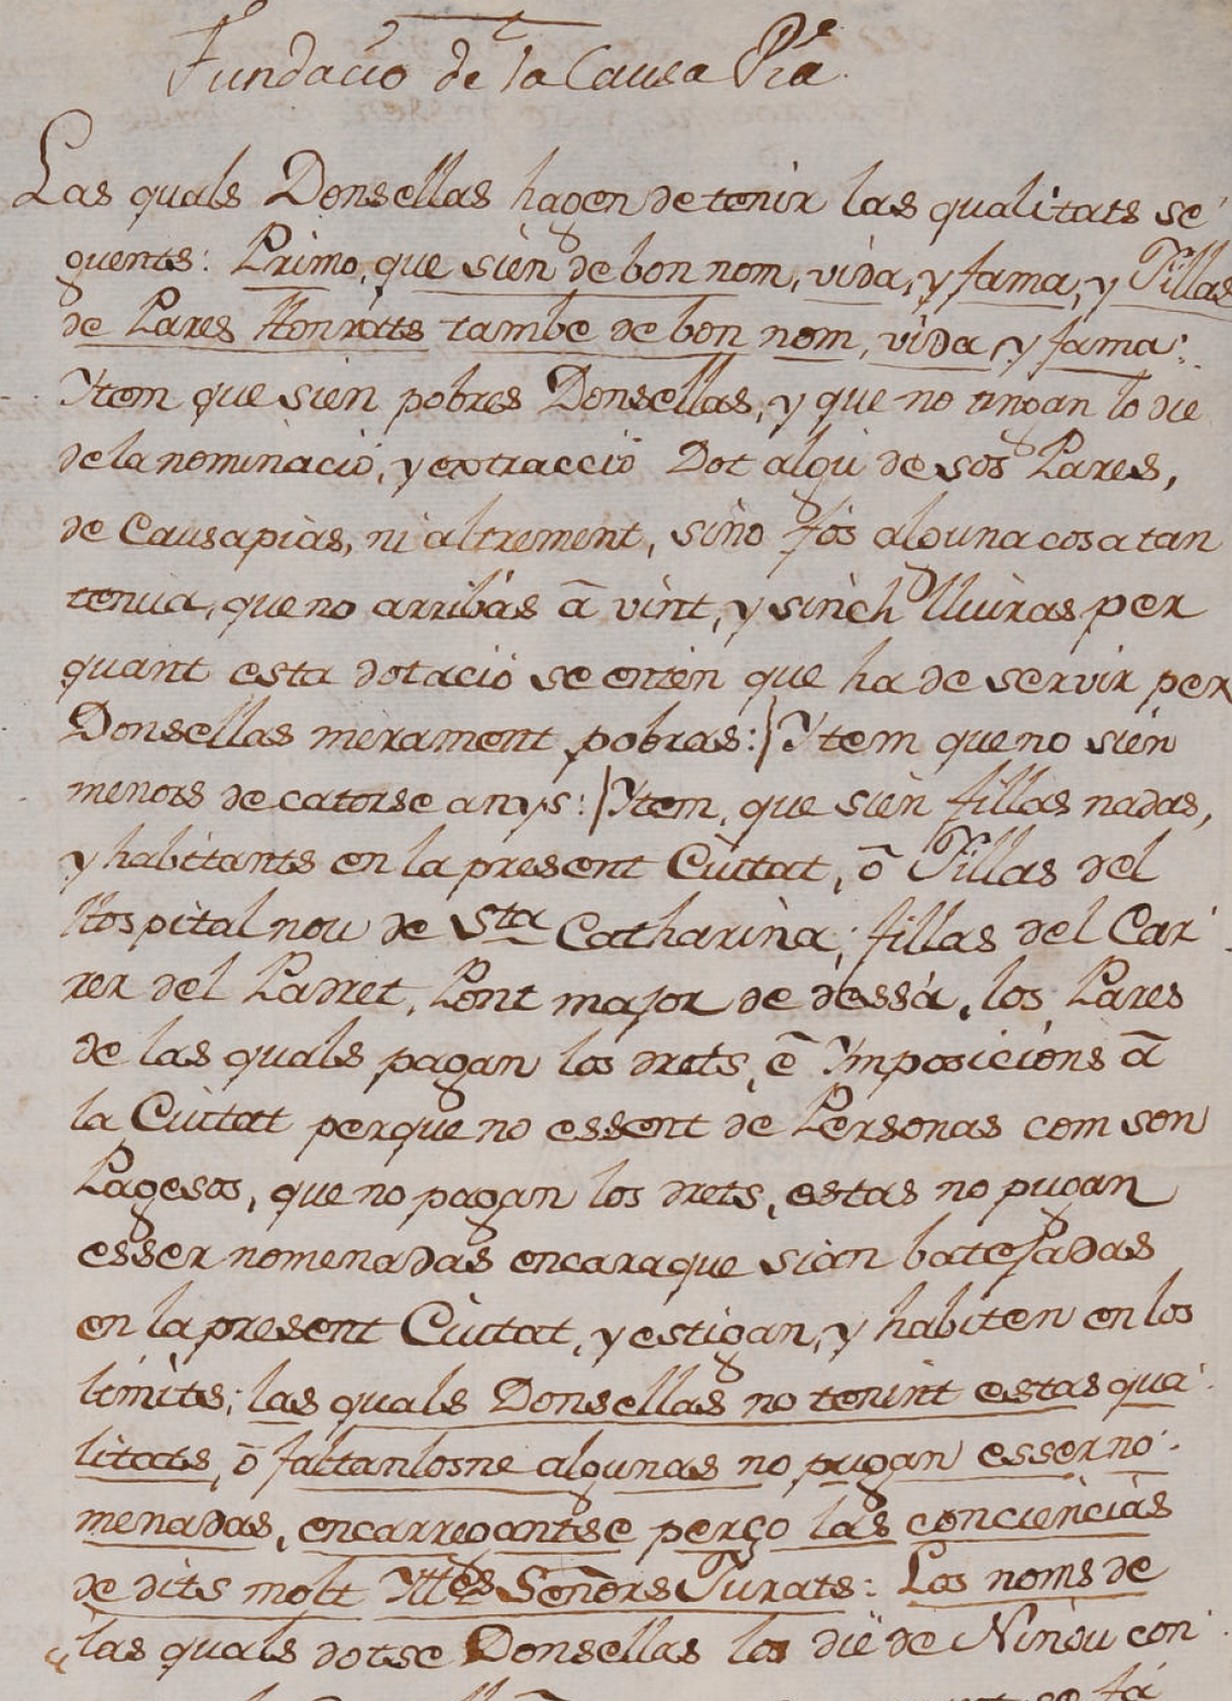 Fundacio de la Causa Pia.
Las quals Donsellas hagen de tenir las qualitats se
guents: Primo, que sien de bon nom, vida, y fama, y Fillas
de Pares Honrats tambe de bon nom, vida y fama:
Ytem que sien pobres Donsellas, y que no tingan lo die
de la nominació, y extracció Dot algu de sos Pares,
de Causapias, ni altrement, sino fos alguna cosa tan
tenua, que no arribás á vint, y sinch lliuras per
quant esta dotació se entén que ha de servir per
Donsellas merament pobras: / Ytem que no sien
menors de catorse anys: / Ytem, que sien fillas nadas,
y habitants en la present Ciutat, ó Fillas del
Hospital nou de Sta Catharina; fillas del Car
rer del Pedret, Pont major de dessá, los Pares
de las quals pagan los drets, é Ymposicións á
la Ciutat perque no essent de Personas com son
Pagesos, que no pagan los drets, estas no pugan
esser nomenadas encara que sian batejadas
en la present Ciutat, y estigan, y habiten en los
limits; las quals Donsellas no tenint estas qua
litats, ó faltanlosne algunas no pugan esser no
menadas, encarregantse perço las conciencias
de dits molt Ittes Señors Jurats: Los noms de
las quals dotse Donsellas los dié de Ninou con